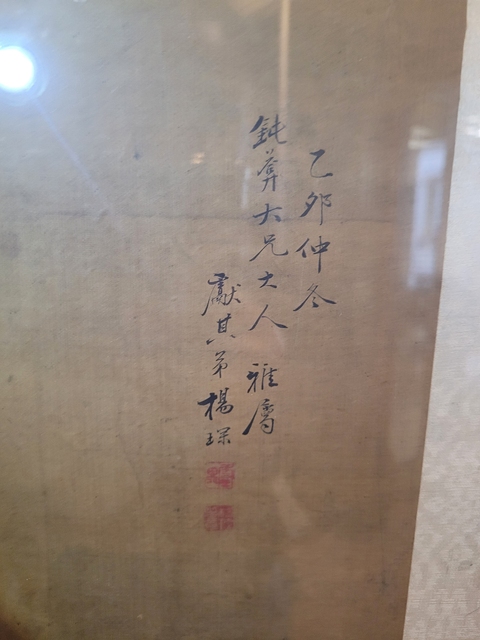 乙夘仲冬
鈍葊大兄大人 雅屬
獻其弟楊琛